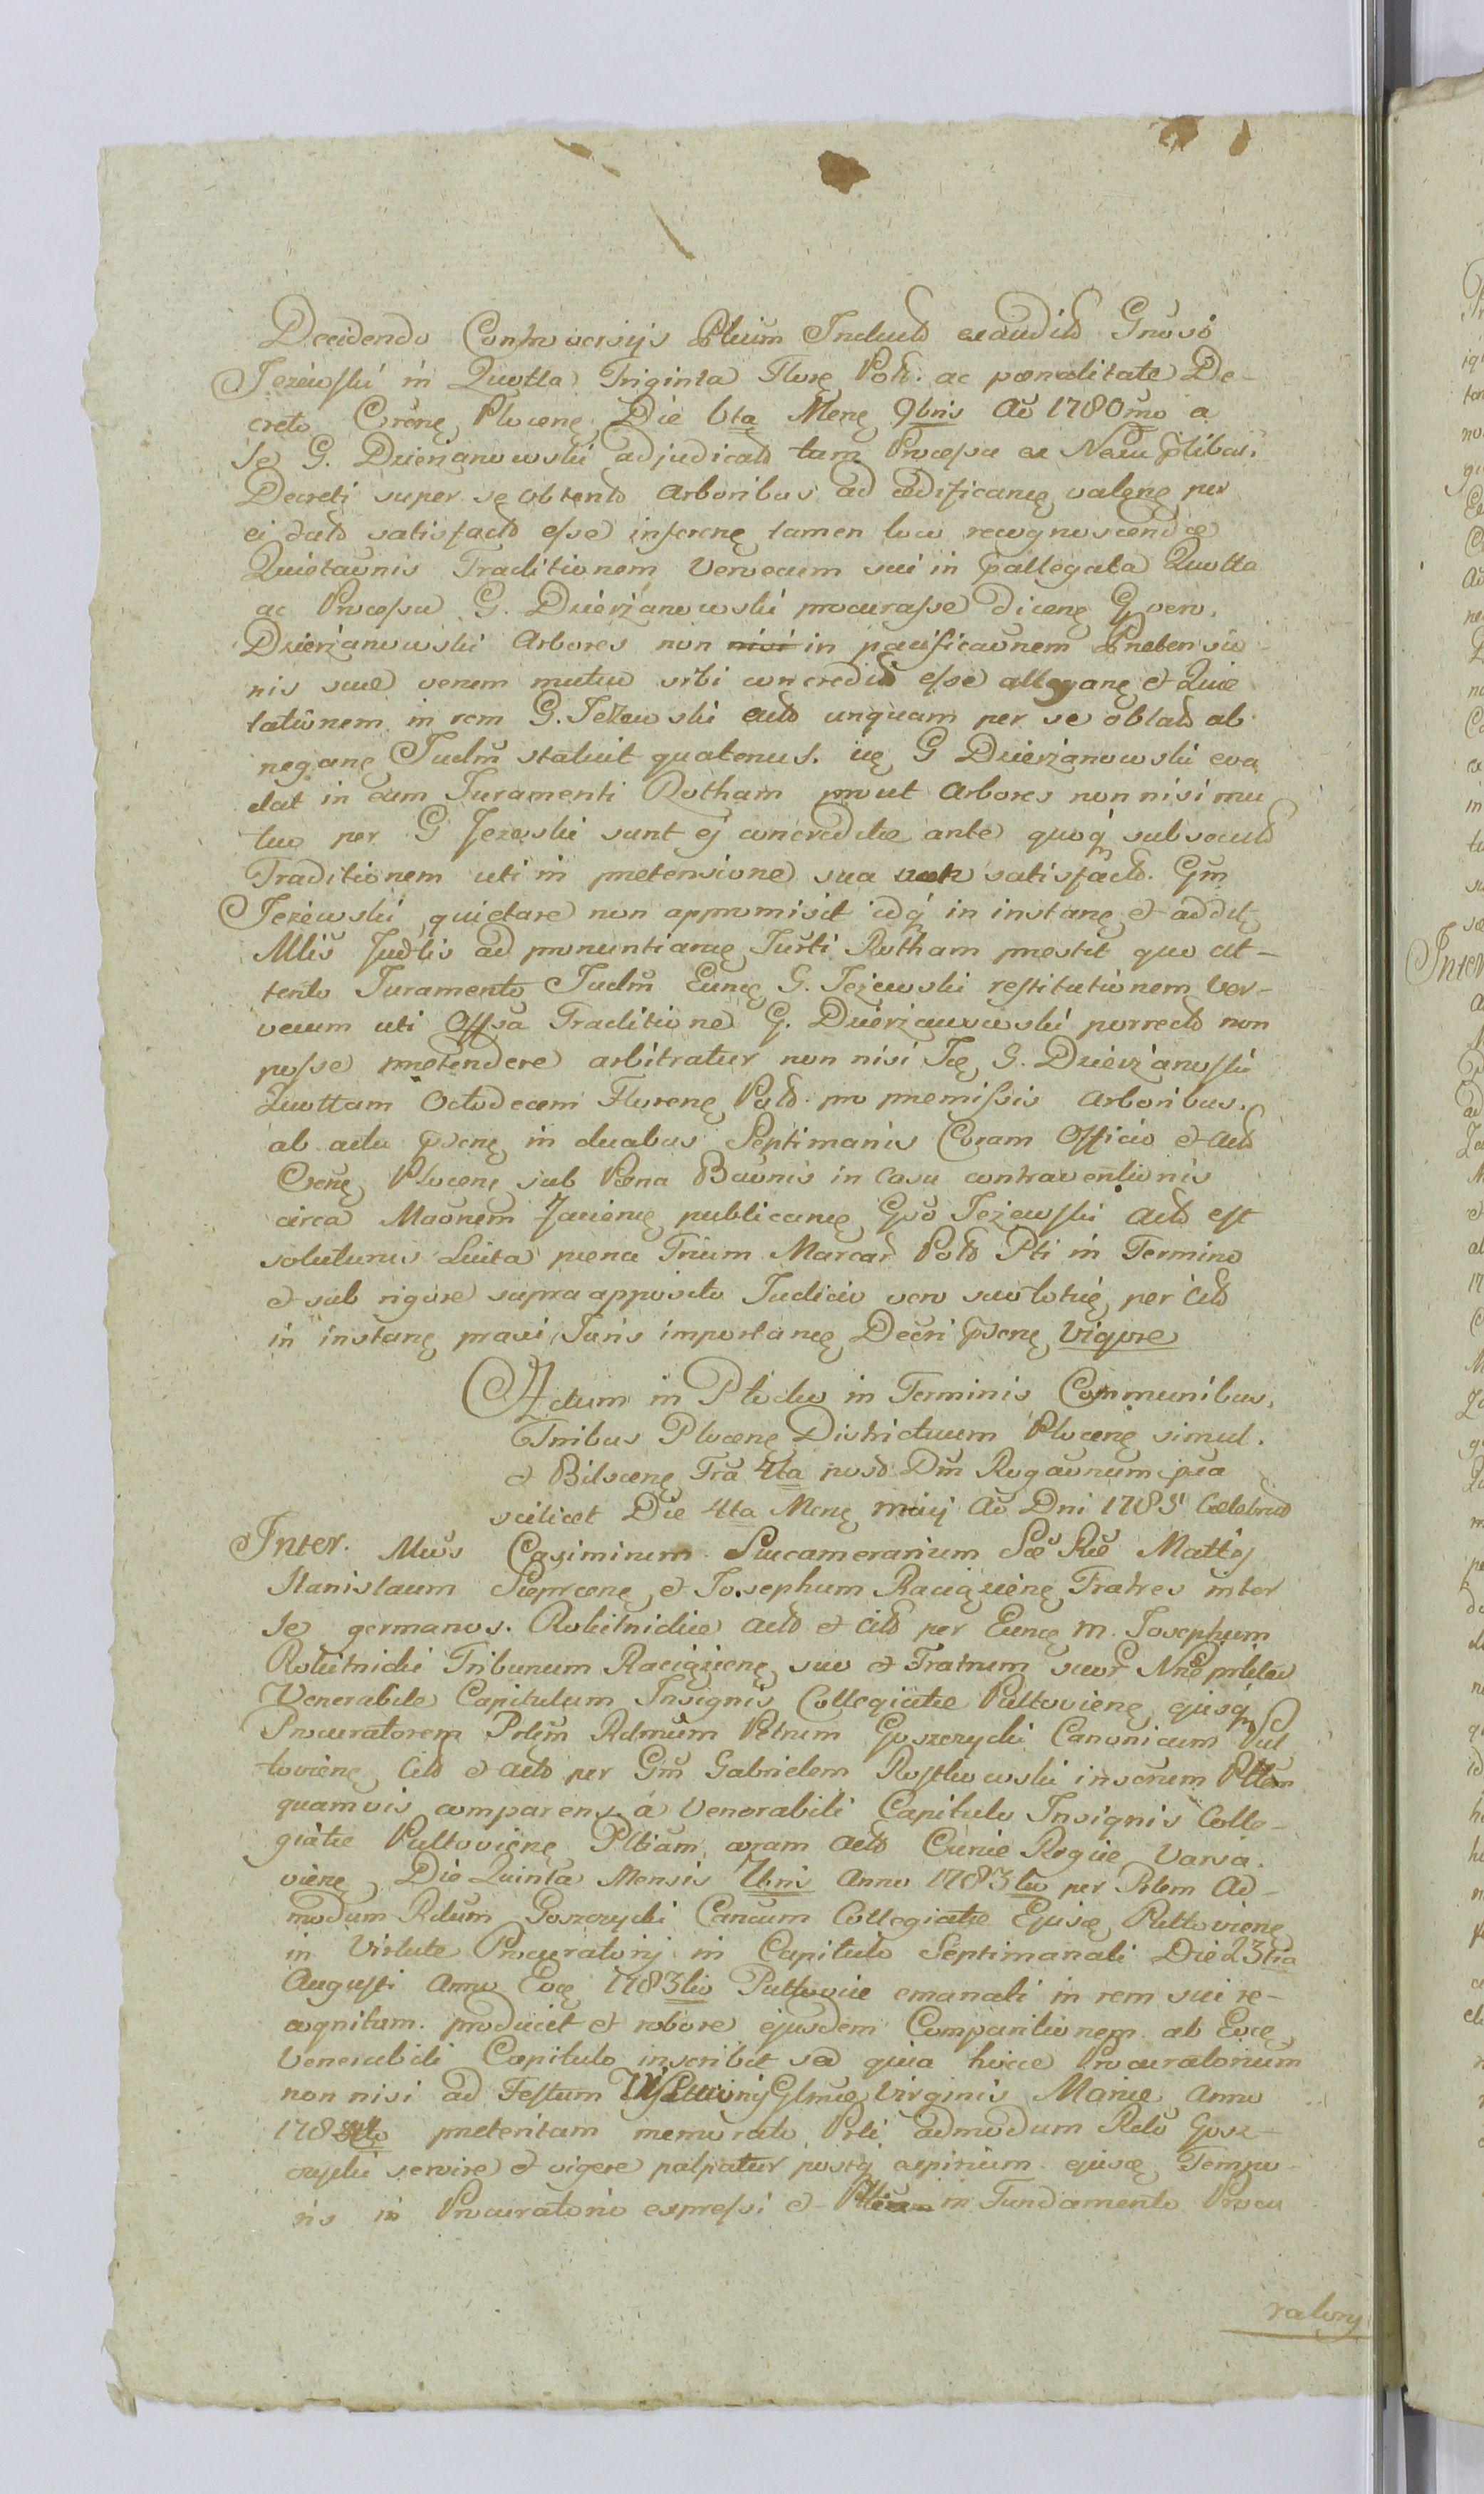 Decidendo Controversijs Ptium Induct exaudit Gnoso
Jezewski in Quotta Triginta Flore Pol. ac poenalitate De-
creto Crene Plocene Die 6ta Mene 9bris Ao 1780mo a
se G. Dzierzanowski adjudicato tam Processu ex Nexu
Decreti super se obtento Arboribus ad ædificane valene per
ei dato satisfacto esse inferene tamen loco recognoscendæ
Quietaonis Traditionem Vervecum sui in pallegata Quotta
ac Processu G. Dzierżanowski procurasse dicene G vero
Dzierżanowski Arbores non nisi in pacificaonem Prætensio
nis suæ verum mutuo sibi concredit esse allegane et Quie
tationem in rem G. Jeżewski acto unquam per se oblato ab
negane Judm statuit quatenus. ice G Dzierżanowski eva
dat in eam Juramenti Rotham prout Arbores non nisi mu
tuo per G Jezewski sunt ej concreditæ ante quoq subsecuto
Traditionem uti in prætensione sua satisfact. Gm
Jeżewski quietare non appromisit idq in instane et addit
Mlis Judlis ad pronuntiane Jurti Rotham præstit quo at-
tento Juramento Judm Eunce G. Jeżewski restitutionem Ver-
vecum uti Offsa Traditione G. Dzierżanowski porrecto non
posse prætendere arbitratur non nisi Ice G. Dzierżanowski
Quottam Octodecem Florene Pold. pro præmissis Arboribus.
ab actu psene in duabus Septimanis Coram Officio et Act
Crene Plocene sub Poena Baonis in casu contraventionis
circa Maonem Jaciene publicane Gso Jeżewski Act est
soluturus Luita poena Trium Marcar Pold Pti in Termino
et sub rigore supra apposito Judicio vero suo totie per Cit
in instane praxi Juris importane Decri psene Vigore
Actum in Plocko in Terminis Communibus.
Tribus Plocene Districtuum Plocene simul.
et Bilscene Fra 4ta post Dm Rogaonum pia
scilicet Die 4ta Mene Maij Ao Dni 1785 Celebrat
Inter. Mcos Casimirum Succamerarium Sæ Ræ Mattis
Stanislaum Sieprcene et Josephum Raciążiene Fratres inter
se germanos. Rokitnickie Act et Cit per Eunce M. Josephum
Rokitnicki Tribunum Raciążiene suo et Fratrum suor Nne
Venerabile Capitulum Insignis Collegiatæ Pultoviene ejusq
Procuratorem Prlem Rdmum Petrum Goszczycki Canonicum Pul
toviene Cit et Act per Gm Gabrielem Rostkowski inscrum Pttem
quamvis comparens a Venerabili Capitulo Insignis Colle-
giatæ Pultoviene Pttiam coram Act Curiæ Regiæ Varsa.
viene Die Quinta Mensis 7bris Anno 1783tio per Prlem Ad-
modum Rdum Goszczycki Cancum Collegiatæ Ejusce Pultoviene
in Virtute Procuratorij in Capitulo Septimanali Die 23tia
Augusti Anno Eoce 1783tio Pultoviæ emanati in rem sui re-
cognitam. producit et robore ejusdem Comparitionem ab Eoce
Venerabili Capitulo inscribit sed quia hicce Procuratorium
non nisi ad Festum Glmæ Virginis Mariæ Anno
præteritam memorato Prli admodum Rdo Gosz-
czycki servire et vigere palpatur postq expirium ejusce Tempo-
ris in Procuratorio expressi et in Fundamento Procu
ratorij